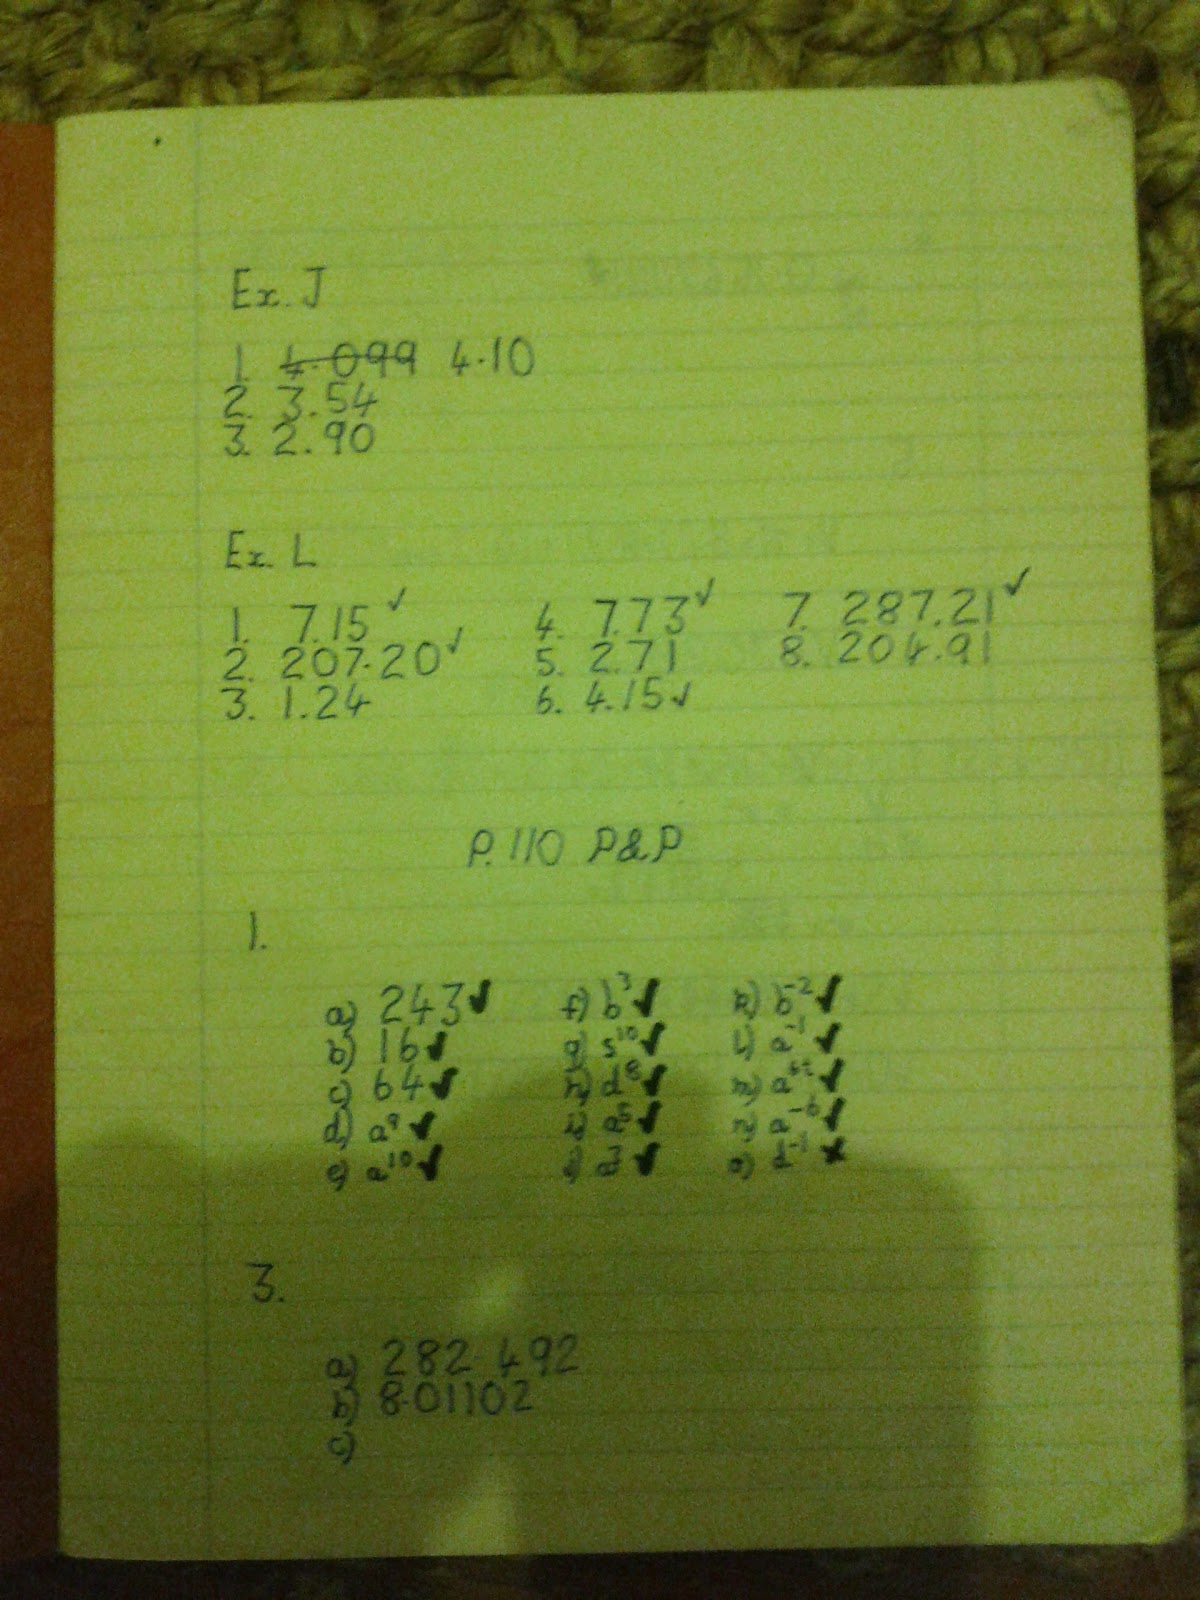 Ex. J
1. 4.099 4.10
2. 3.54
3. 2.90
Ex. L
1. 7.15 ✓ 4. 7.73 ✓ 7. 287.21 ✓
2. 207.20 ✓ 5. 2.71 8. 204.91
3. 1.24 6. 4.15 ✓
P. 110 P&P
1.
a) 243 ✓ f) b³ ✓ k) b⁻² ✓
b) 16 ✓ g) s¹⁰ ✓ l) a⁻¹ ✓
c) 64 ✓ h) d⁸ ✓ m) ✓
d) a⁹ ✓ i) a⁵ ✓ n) a⁻⁶ ✓
e) a¹⁰ ✓ ✓ o) ✗
3.
a) 282.492
b) 8.01102
c)